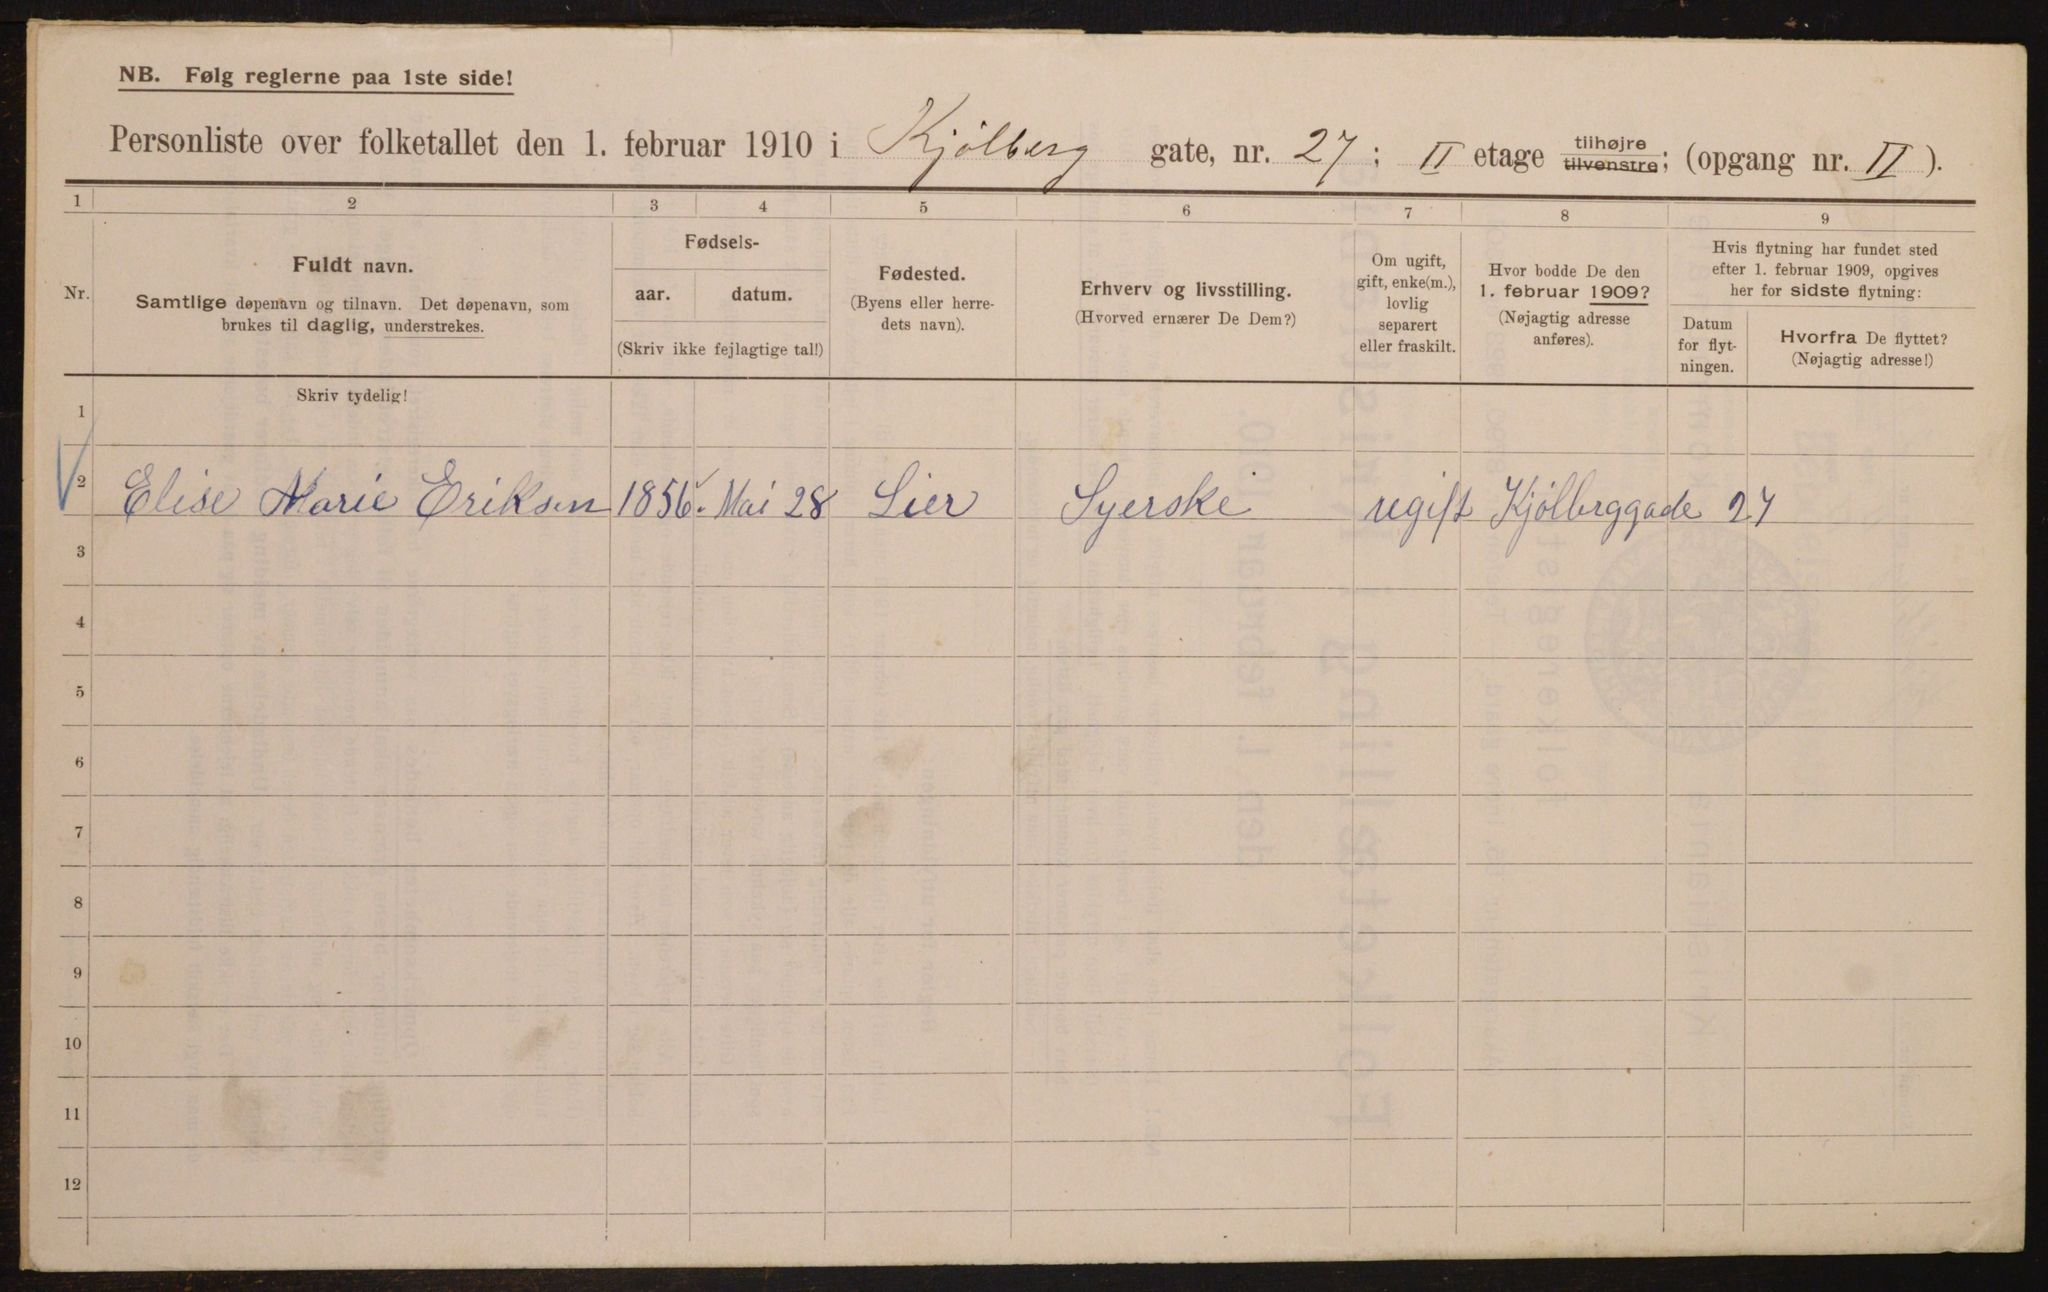 NB. Følg reglerne paa 1ste side!
Personliste over folketallet den 1. februar 1910 i Kjølberg gate, nr. 27; II etage tilhøjre tilvenstre; (opgang nr. II).
1 2 3 4 5 6 7 8 9
Nr.
Fuldt navn.
Samtlige døpenavn og tilnavn. Det døpenavn, som
brukes til daglig, understrekes.
Fødsels-
aar. datum.
(Skriv ikke fejlagtige tal!)
Fødested.
(Byens eller herre-
dets navn).
Erhverv og livsstilling.
(Hvorved ernærer De Dem?)
Om ugift,
gift, enke(m.),
lovlig
separert
eller fraskilt.
Hvor bodde De den
1. februar 1909?
(Nøjagtig adresse
anføres).
Hvis flytning har fundet sted
efter 1. februar 1909, opgives
her for sidste flytning:
Datum
for flyt-
ningen.
Hvorfra De flyttet?
(Nøjagtig adresse!)
Skriv tydelig!
1
2 Elise Marie Eriksen 1856. Mai 28 Lier Syerske ugift Kjølberggade 27
3
4
5
6
7
8
9
10
11
12